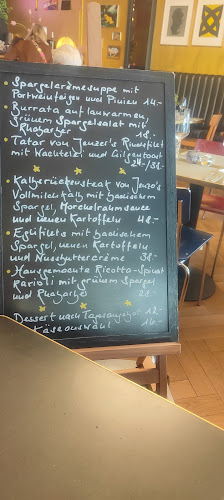 Spargelcrèmesuppe mit
Portweinfeigen und Pinien 14.-
Burrata auf lauwarmem,
grünem Spargelsalat mit
Rhabarber 18.-
Tatar von Jenzer's Rindsfilet
mit Wachtelei und Toast
24.-/38.-
Kalbsrückensteak von Jenzer's
Vollmilchkalb mit badischem
Spargel, Morchelrahmsauce
und neuen Kartoffeln 48.-
Eglifilets mit badischem
Spargel, neuen Kartoffeln
und Nussbuttercrème 38.-
Hausgemachte Ricotto-Spinat
Ravioli mit grünem Spargel
und Rhabarber 28.-
Dessert nach Tagesangebot 12.-
Käseauswahl 16.-